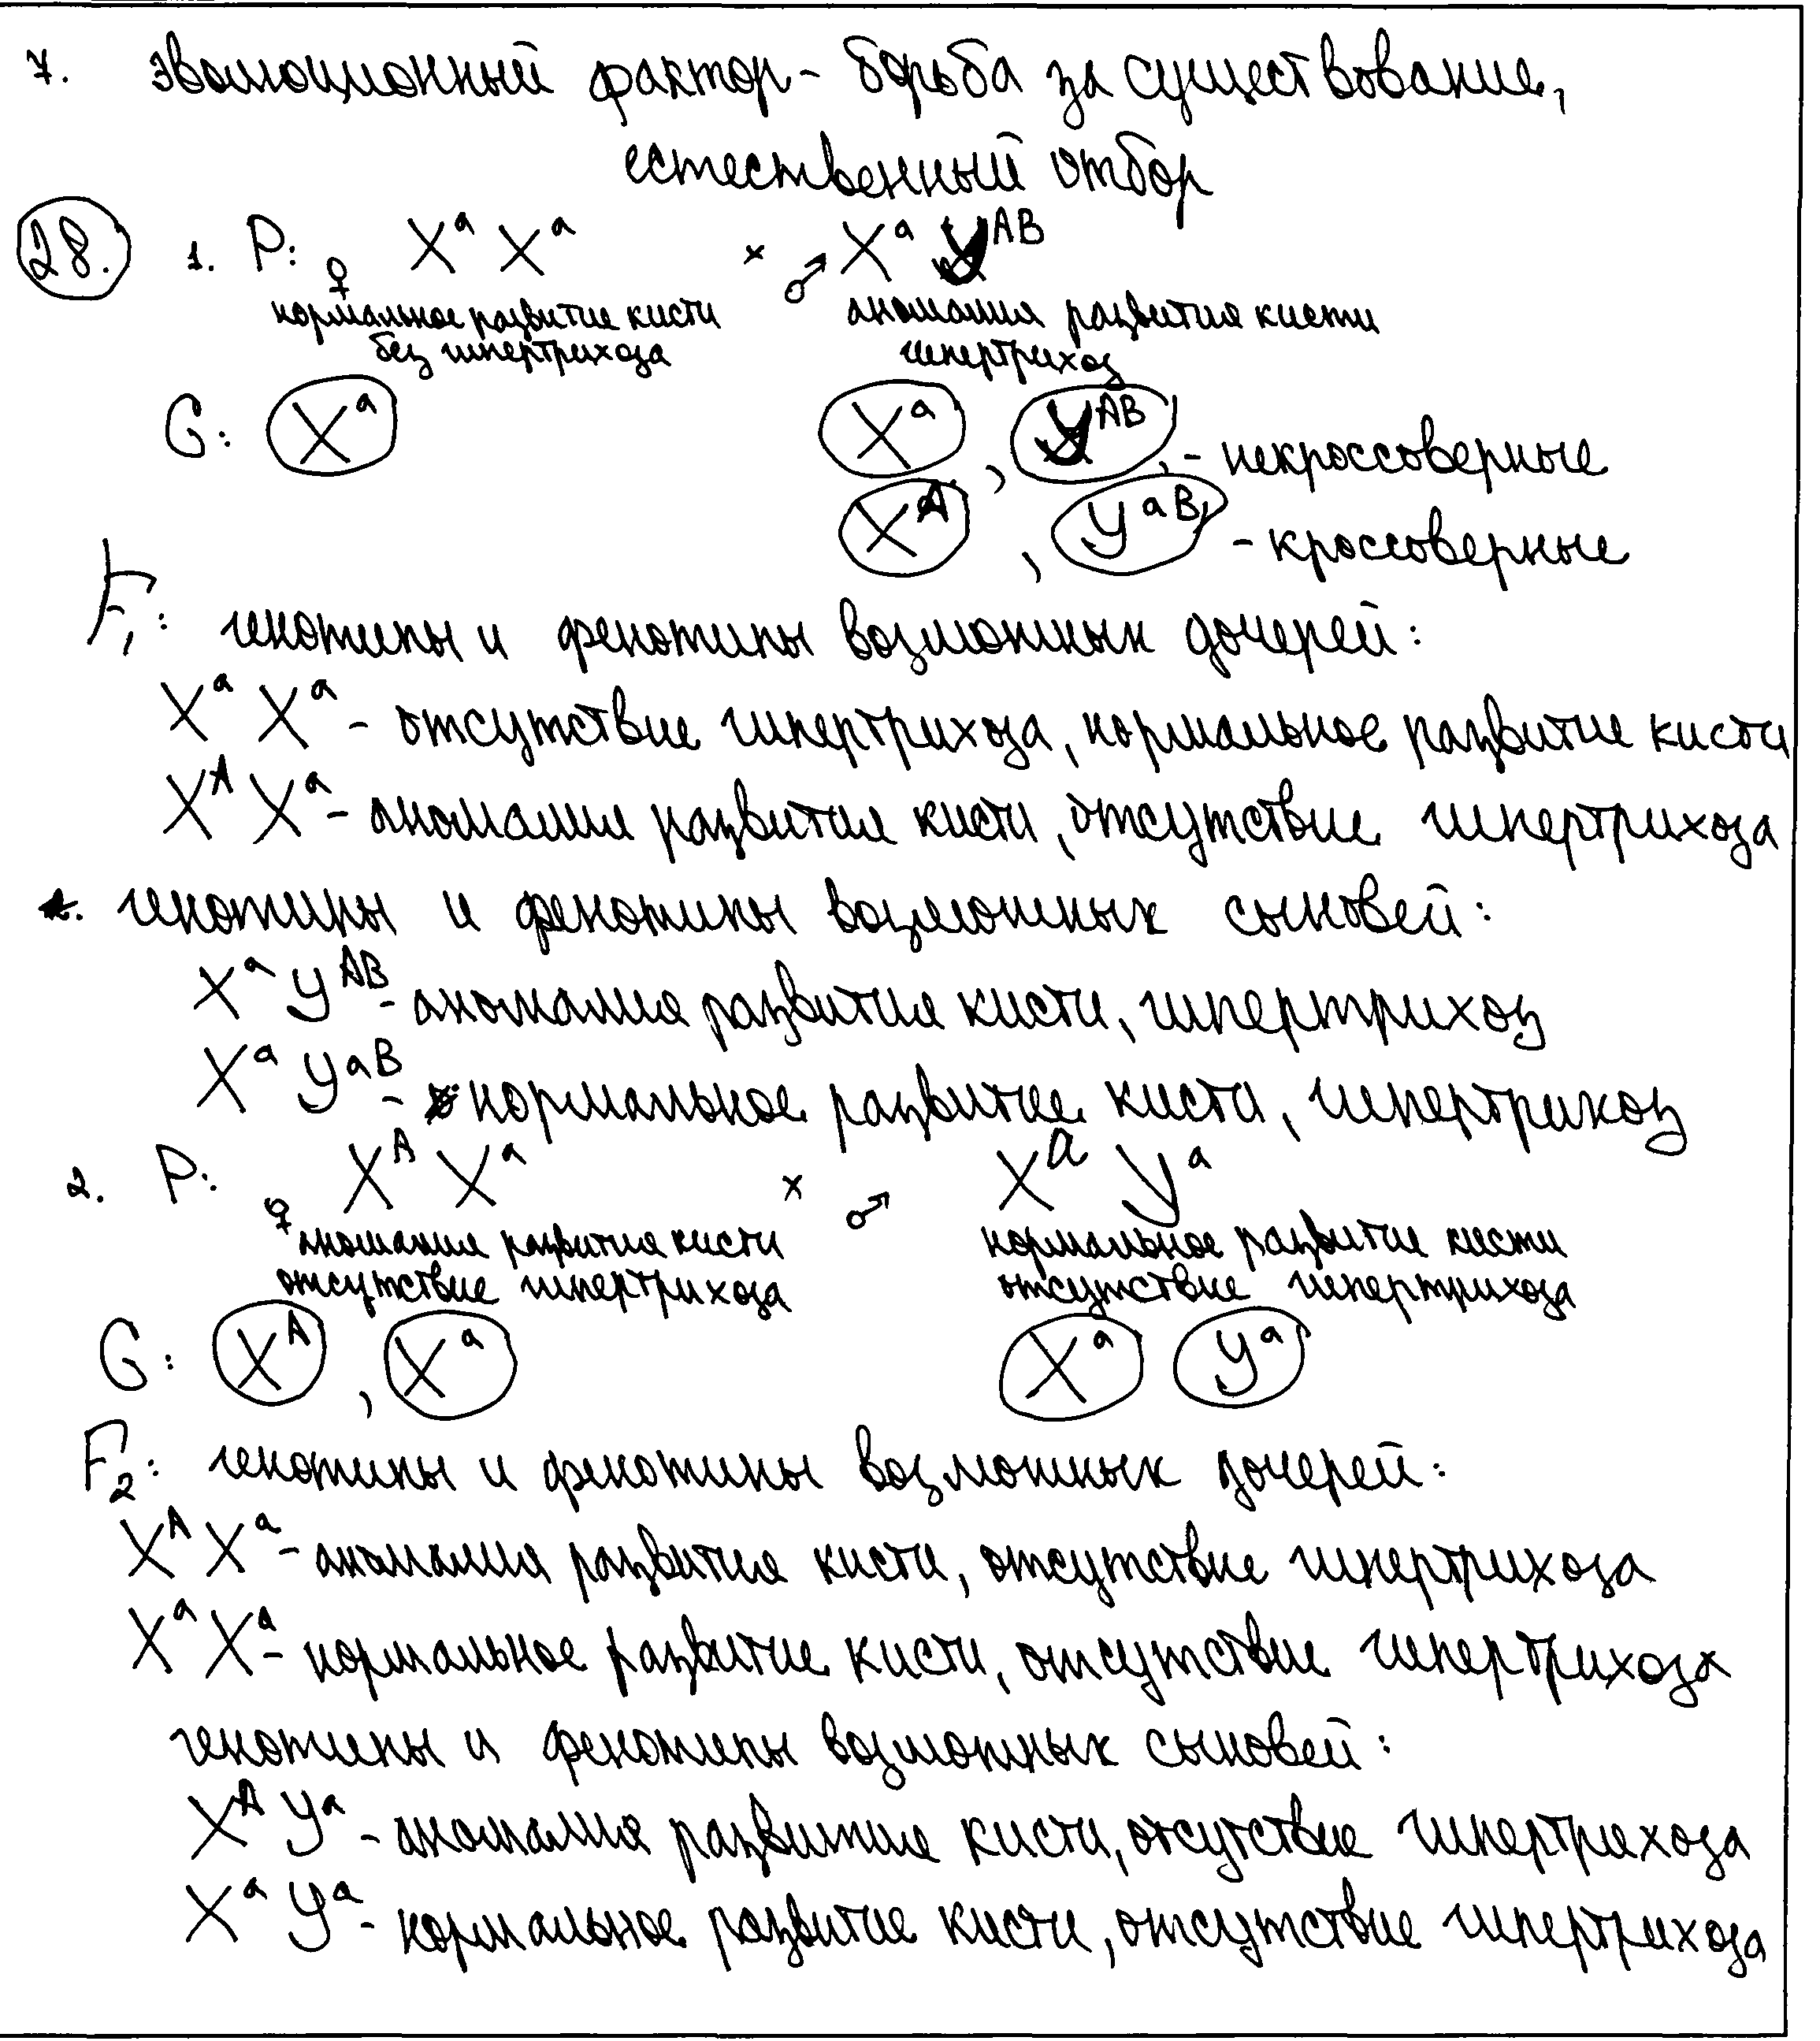 7. эволюционный фактор - борьба за существование,
естественный отбор
28. 1. P: ♀ XᵃXᵃ × ♂ XᵃYᴬᴮ
нормальное развитие кисти аномалия развития кисти
без гипертрихоза гипертрихоз
G: Xᵃ Xᵃ, Yᴬᴮ, - некроссоверные
Xᴬ, Yᵃᴮ - кроссоверные
F₁: генотипы и фенотипы возможных дочерей:
XᵃXᵃ - отсутствие гипертрихоза, нормальное развитие кисти
XᴬXᵃ - аномалия развития кисти, отсутствие гипертрихоза
генотипы и фенотипы возможных сыновей:
XᵃYᴬᴮ - аномалия развития кисти, гипертрихоз
XᵃYᵃᴮ - нормальное развитие кисти, гипертрихоз
2. P: ♀ XᴬXᵃ × ♂ XᵃYᵃ
аномалия развития кисти нормальное развитие кисти
отсутствие гипертрихоза отсутствие гипертрихоза
G: Xᴬ, Xᵃ Xᵃ Yᵃ
F₂: генотипы и фенотипы возможных дочерей:
XᴬXᵃ - аномалия развития кисти, отсутствие гипертрихоза
XᵃXᵃ - нормальное развитие кисти, отсутствие гипертрихоза
генотипы и фенотипы возможных сыновей:
XᴬYᵃ - аномалия развития кисти, отсутствие гипертрихоза
XᵃYᵃ - нормальное развитие кисти, отсутствие гипертрихоза